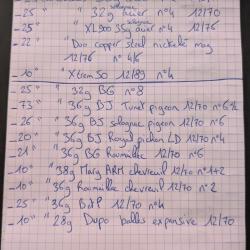 _25 " 32g acier n°4 12/70
sologne
_25 " XL900 35g acier n°4 12/76
_22 " Duo copper steel nickelé mag
12/76 n° 4/6
_10 " Xtrem 50 12/89 n°4
_25 " 32g BG n°8
_73 " 36g DJ Tunet pigeon 12/70 n°6
_26 " 36g BJ sologne pigeon 12/70 n°6
_20 " 36g BJ Royal pichon LD 12/70 n°4
_21 " 36g BG Roumaillac 12/70 n°6
_10 " 38g Mary ARM chevreuil 12/70 n°1+2
_10 " 36g Roumaillac chevreuil 12/70 n°2
_25 " 36g B&P 12/70 n°4
_10 " 28g Dupo balles expansive 12/70